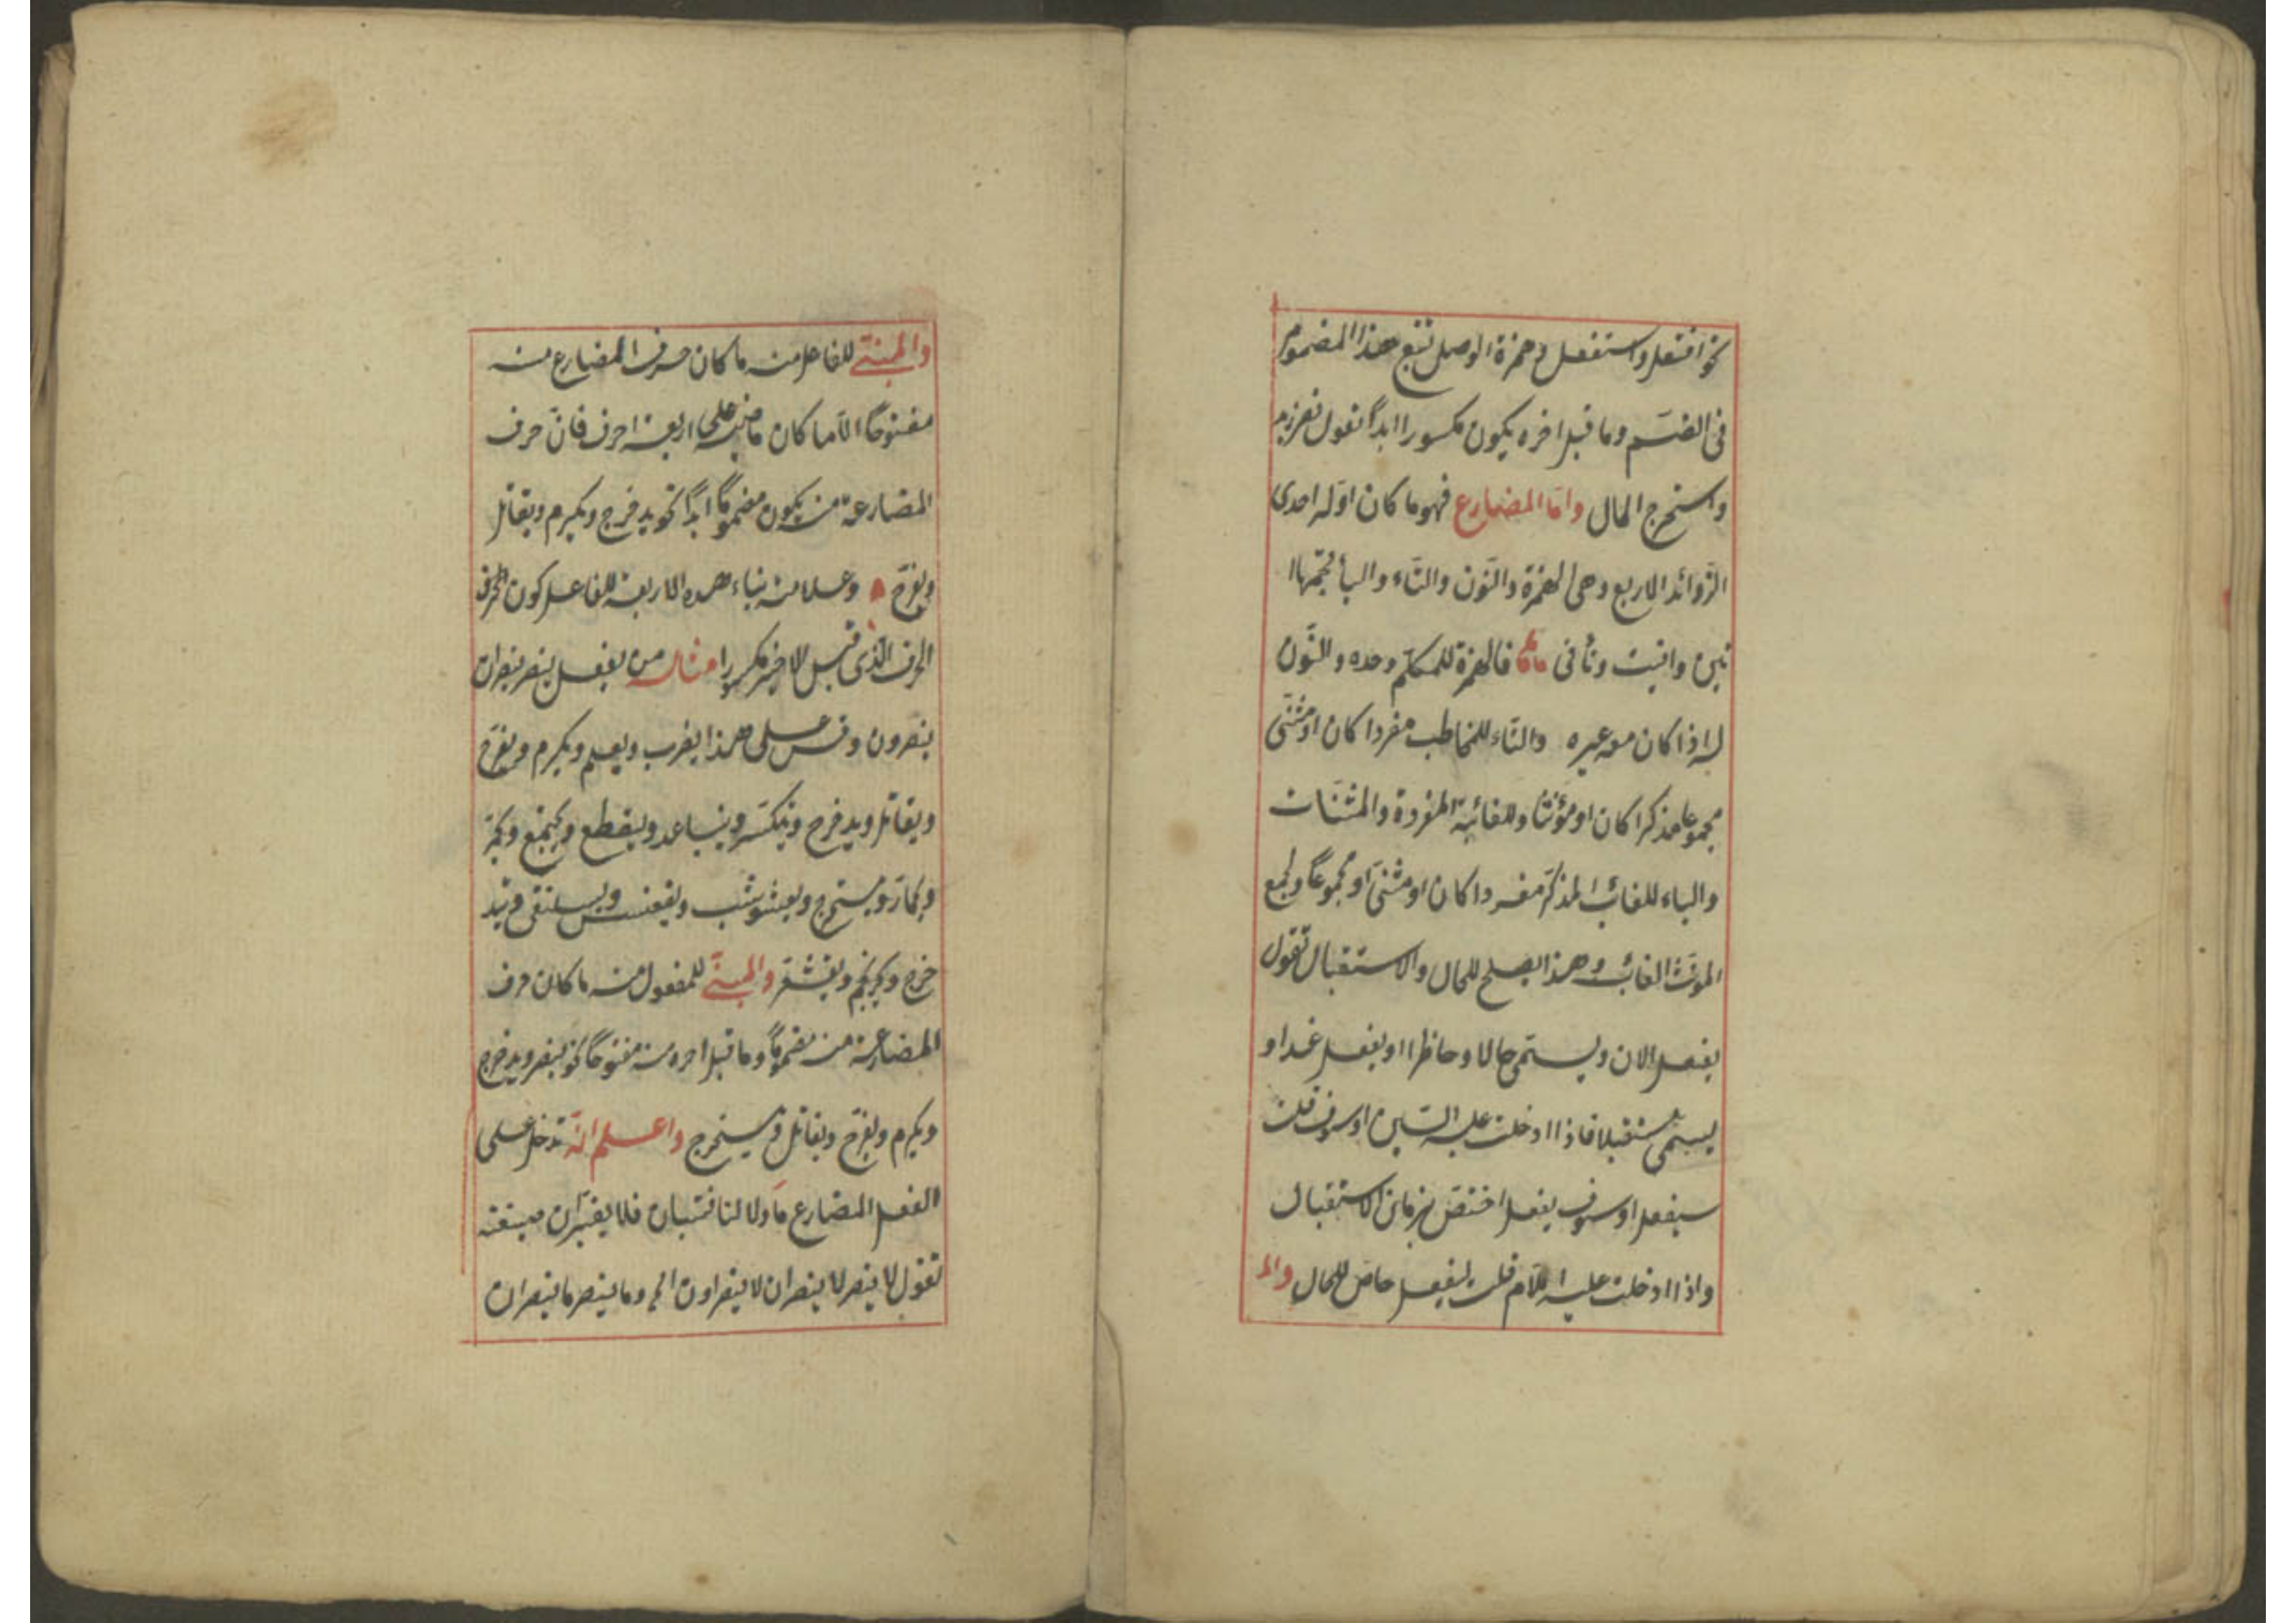 نحو افتعل واستفعل وهمزة الوصل تتبع هذا المضموم
فى الضم وما قبل اخره يكون مكسورا ابدا تقول نصر زيد
واستخرج المال واما المضارع فهو ما كان اوله احدى
الزوائد الاربع وهى الهمزة والنون والتاء والياء يجمعها
انيت وتأتى فالهمزة للمتكلم وحده والنون
له اذا كان معه غيره والتاء للمخاطب مفردا كان او مثنى
مجموعا مذكرا كان او مؤنثا وللغائبة المفردة والمثنات
والياء للغائب المذكر مفردا كان او مثنى او مجموعا ولجمع
المونث الغائب وهذا يصلح للحال والاستقبال تقول
يفعل الان ويسمى حالا وحاظرا او يفعل غدا و
يسمى مستقبلا فاذا ادخلت عليه السين او سوف قلت
سيفعل او سوف يفعل اختص بزمان الاستقبال
واذا ادخلت عليه اللام قلت ليفعل خاص للحال والم
والمبنى للفاعل منه ما كان حرف المضارع منه
مفتوحا الا ما كان ماضيه على اربعة احرف فان حرف
المضارعة منه يكون مضموما ابدا نحو يدخرج ويكرم ويقاتل
ويفرح وعلامة بناء هذه الاربعة للفاعل كون الحرف
الحرف الذى قبل الاخر مكسورا مثاله من يفعل ينصر ينصران
ينصرون وقس على هذا يضرب ويعلم ويكرم ويفرح
ويقاتل ويدخرج ويتكسر ويتباعد ويقطع ويجتمع ويحمر
ويحمار ويستخرج ويعشوشب ويقعنسس ويسلنقى ويتد
خرج ويحرنجم ويقشعر والمبنى للمفعول منه ما كان حرف
المضارعة منه مضموما وما قبل اخره منه مفتوحا نحو ينصر ويدخرج
ويكرم ويفرح ويقاتل ويستخرج واعلم انه تدخل على
الفعل المضارع ما ولا النافيتان فلا يغيران صيغته
تقول لا ينصر لا ينصران لا ينصرون الخ وما ينصر ما ينصران